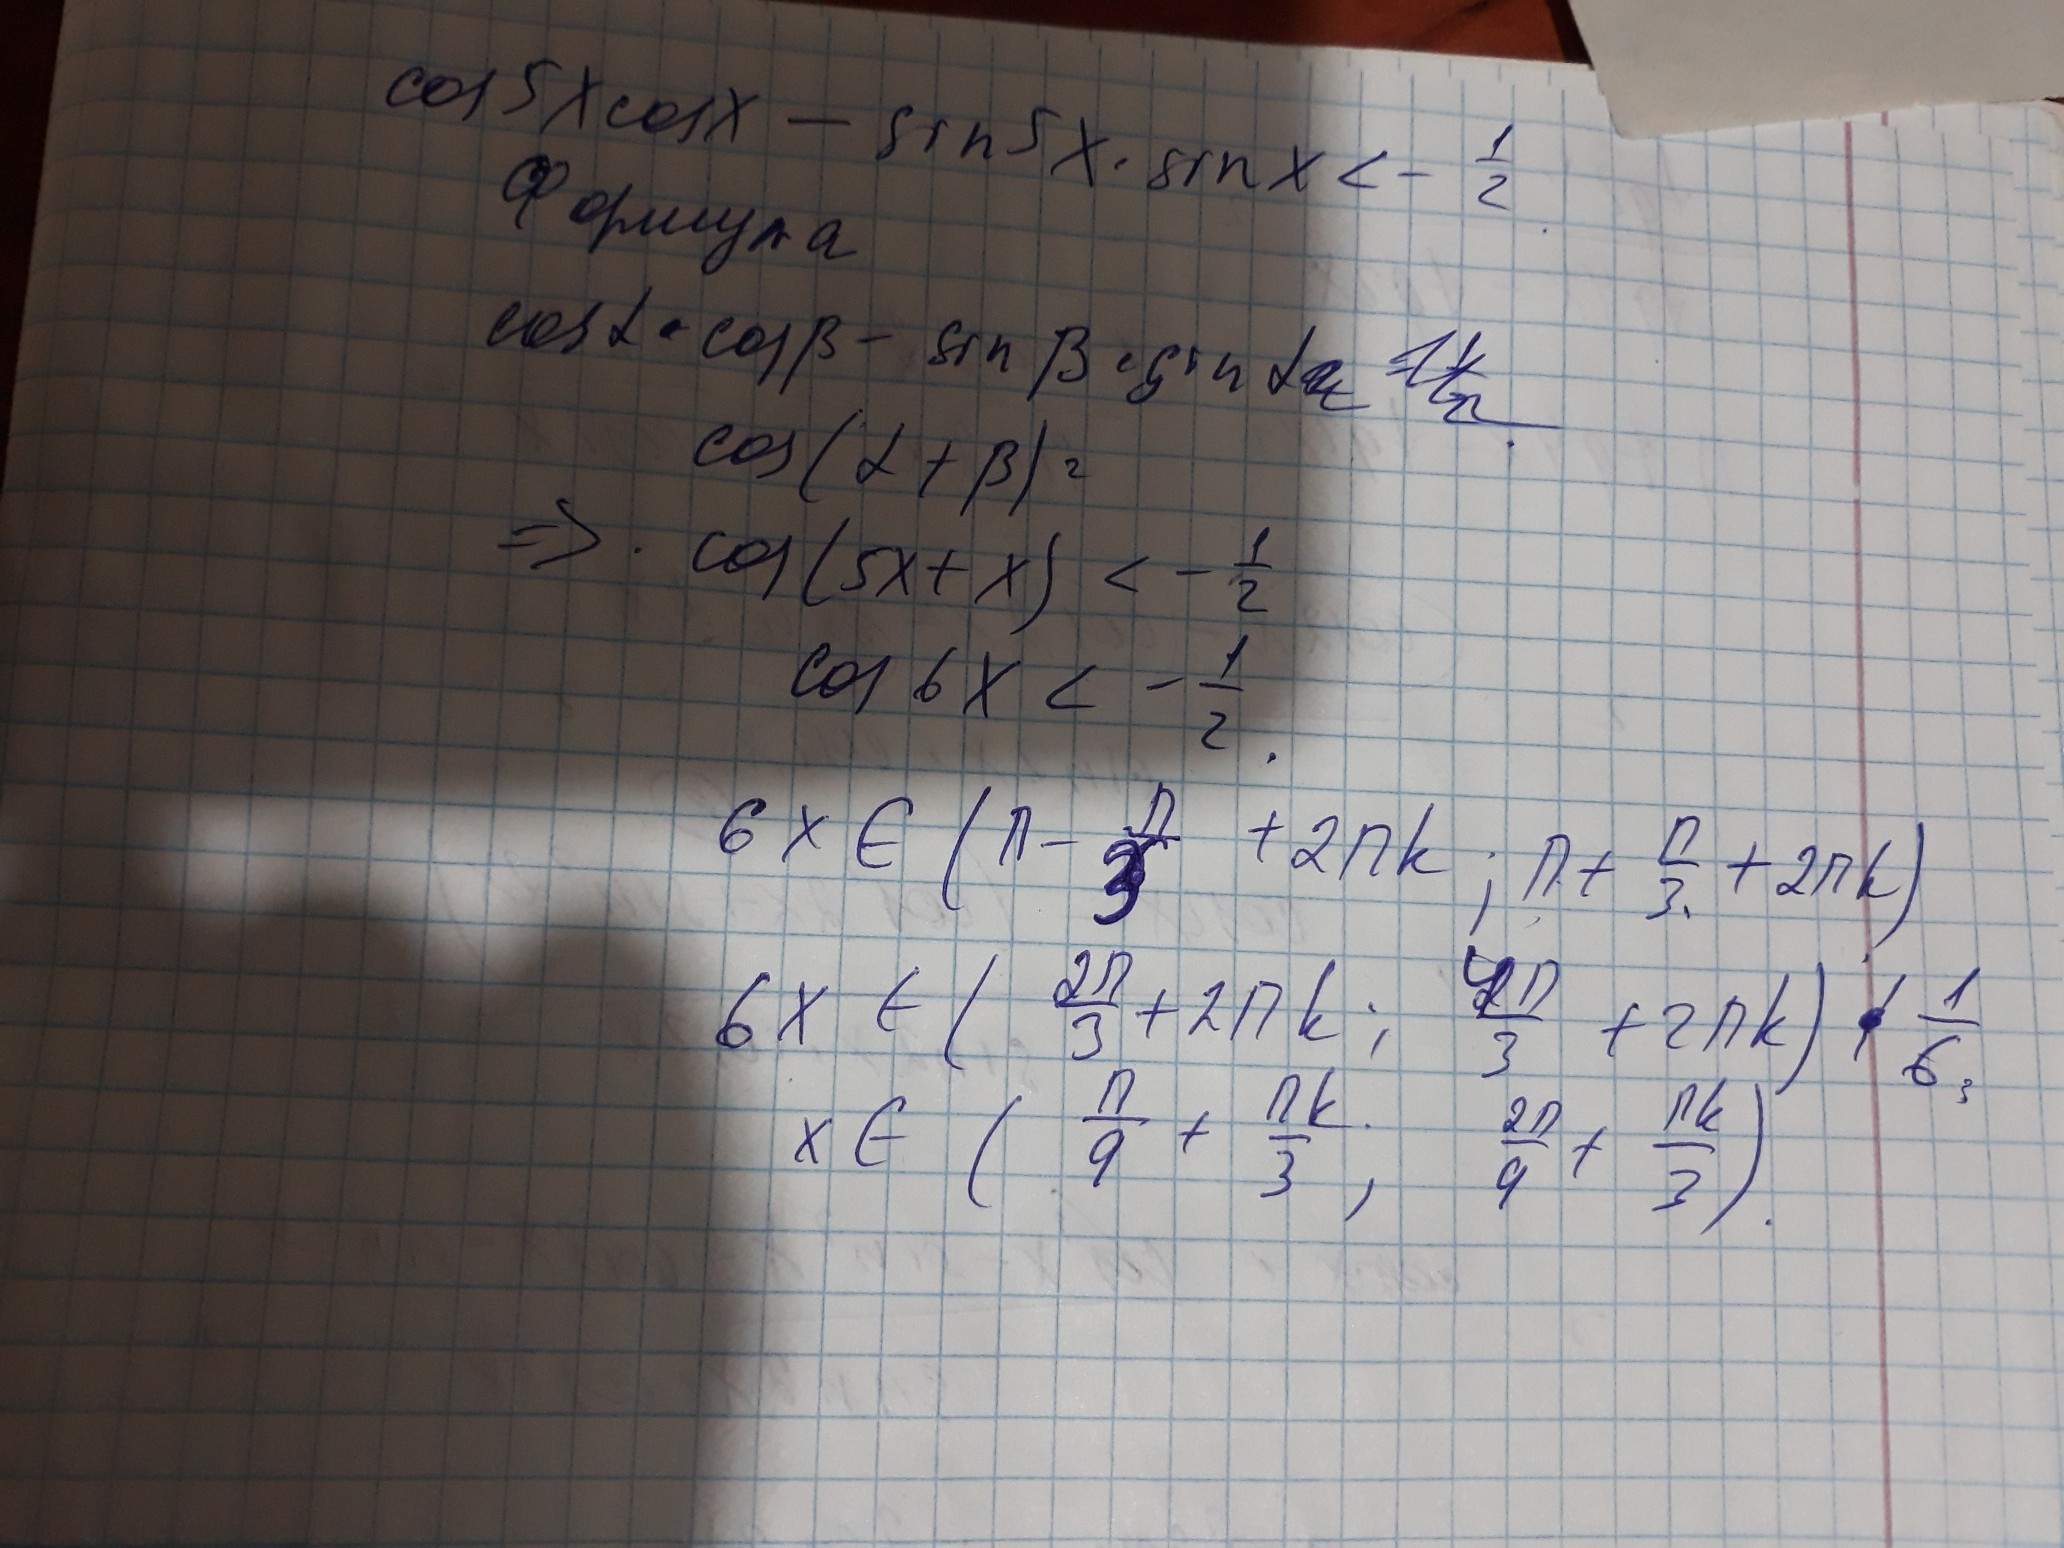 cos5xcosx – sin5x·sinx < – 1/2
Формула
cosα·cosβ – sinβ·sinα
cos(α+β)=
=> cos(5x+x) < – 1/2
cos6x < – 1/2.
6x ∈ (π – π/3 + 2πk; π + π/3 + 2πk)
6x ∈ (2π/3 + 2πk; 4π/3 + 2πk) · 1/6
x ∈ (π/9 + πk/3; 2π/9 + πk/3).